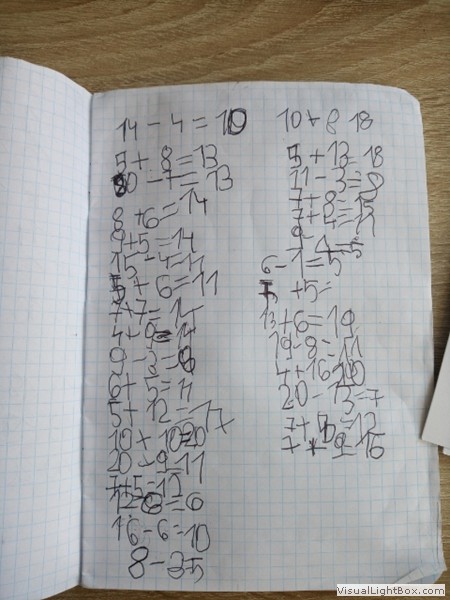 14 - 4 = 10
5 + 8 = 13
20 - 7 = 13
8 + 6 = 14
9 + 5 = 14
15 - 4 = 11
5 + 6 = 11
7 + 7 = 14
9 - 3 = 6
6 + 5 = 11
5 + 12 = 17
10 + 10 = 20
20 - 9 = 11
7 + 5 = 12
12 - 6 = 6
16 - 6 = 10
8 - 3 = 5
10 + 8 18
5 + 13 = 18
11 - 3 = 8
7 + 8 = 15
7 + 4 = 11
9 - 4 = 5
6 - 1 = 5
+ 5 =
13 + 6 = 19
19 - 8 = 11
4 + 16 = 20
20 - 13 = 7
7 + 5 = 12
VisualLightBox.com